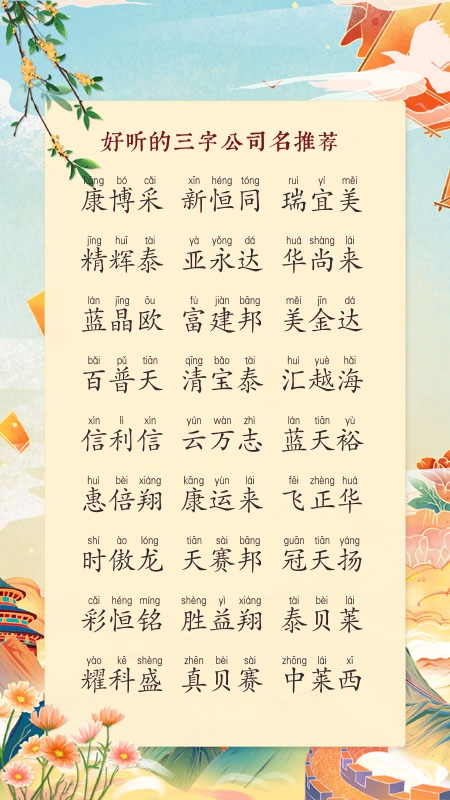 好听的三字公司名推荐
kāng bó cǎi xīn héng tóng ruì yí měi
康博采 新恒同 瑞宜美
jīng huī tài yà yǒng dá huá shàng lái
精辉泰 亚永达 华尚来
lán jīng ōu fù jiàn bāng měi jīn dá
蓝晶欧 富建邦 美金达
bǎi pǔ tiān qīng bǎo tài huì yuè hǎi
百普天 清宝泰 汇越海
xìn lì xìn yún wàn zhì lán tiān yù
信利信 云万志 蓝天裕
huì bèi xiáng kāng yùn lái fēi zhèng huá
惠倍翔 康运来 飞正华
shí ào lóng tiān sài bāng guān tiān yáng
时傲龙 天赛邦 冠天扬
cǎi héng míng shèng yì xiáng tài bèi lái
彩恒铭 胜益翔 泰贝莱
yào kē shèng zhēn bèi sài zhōng lái xī
耀科盛 真贝赛 中莱西